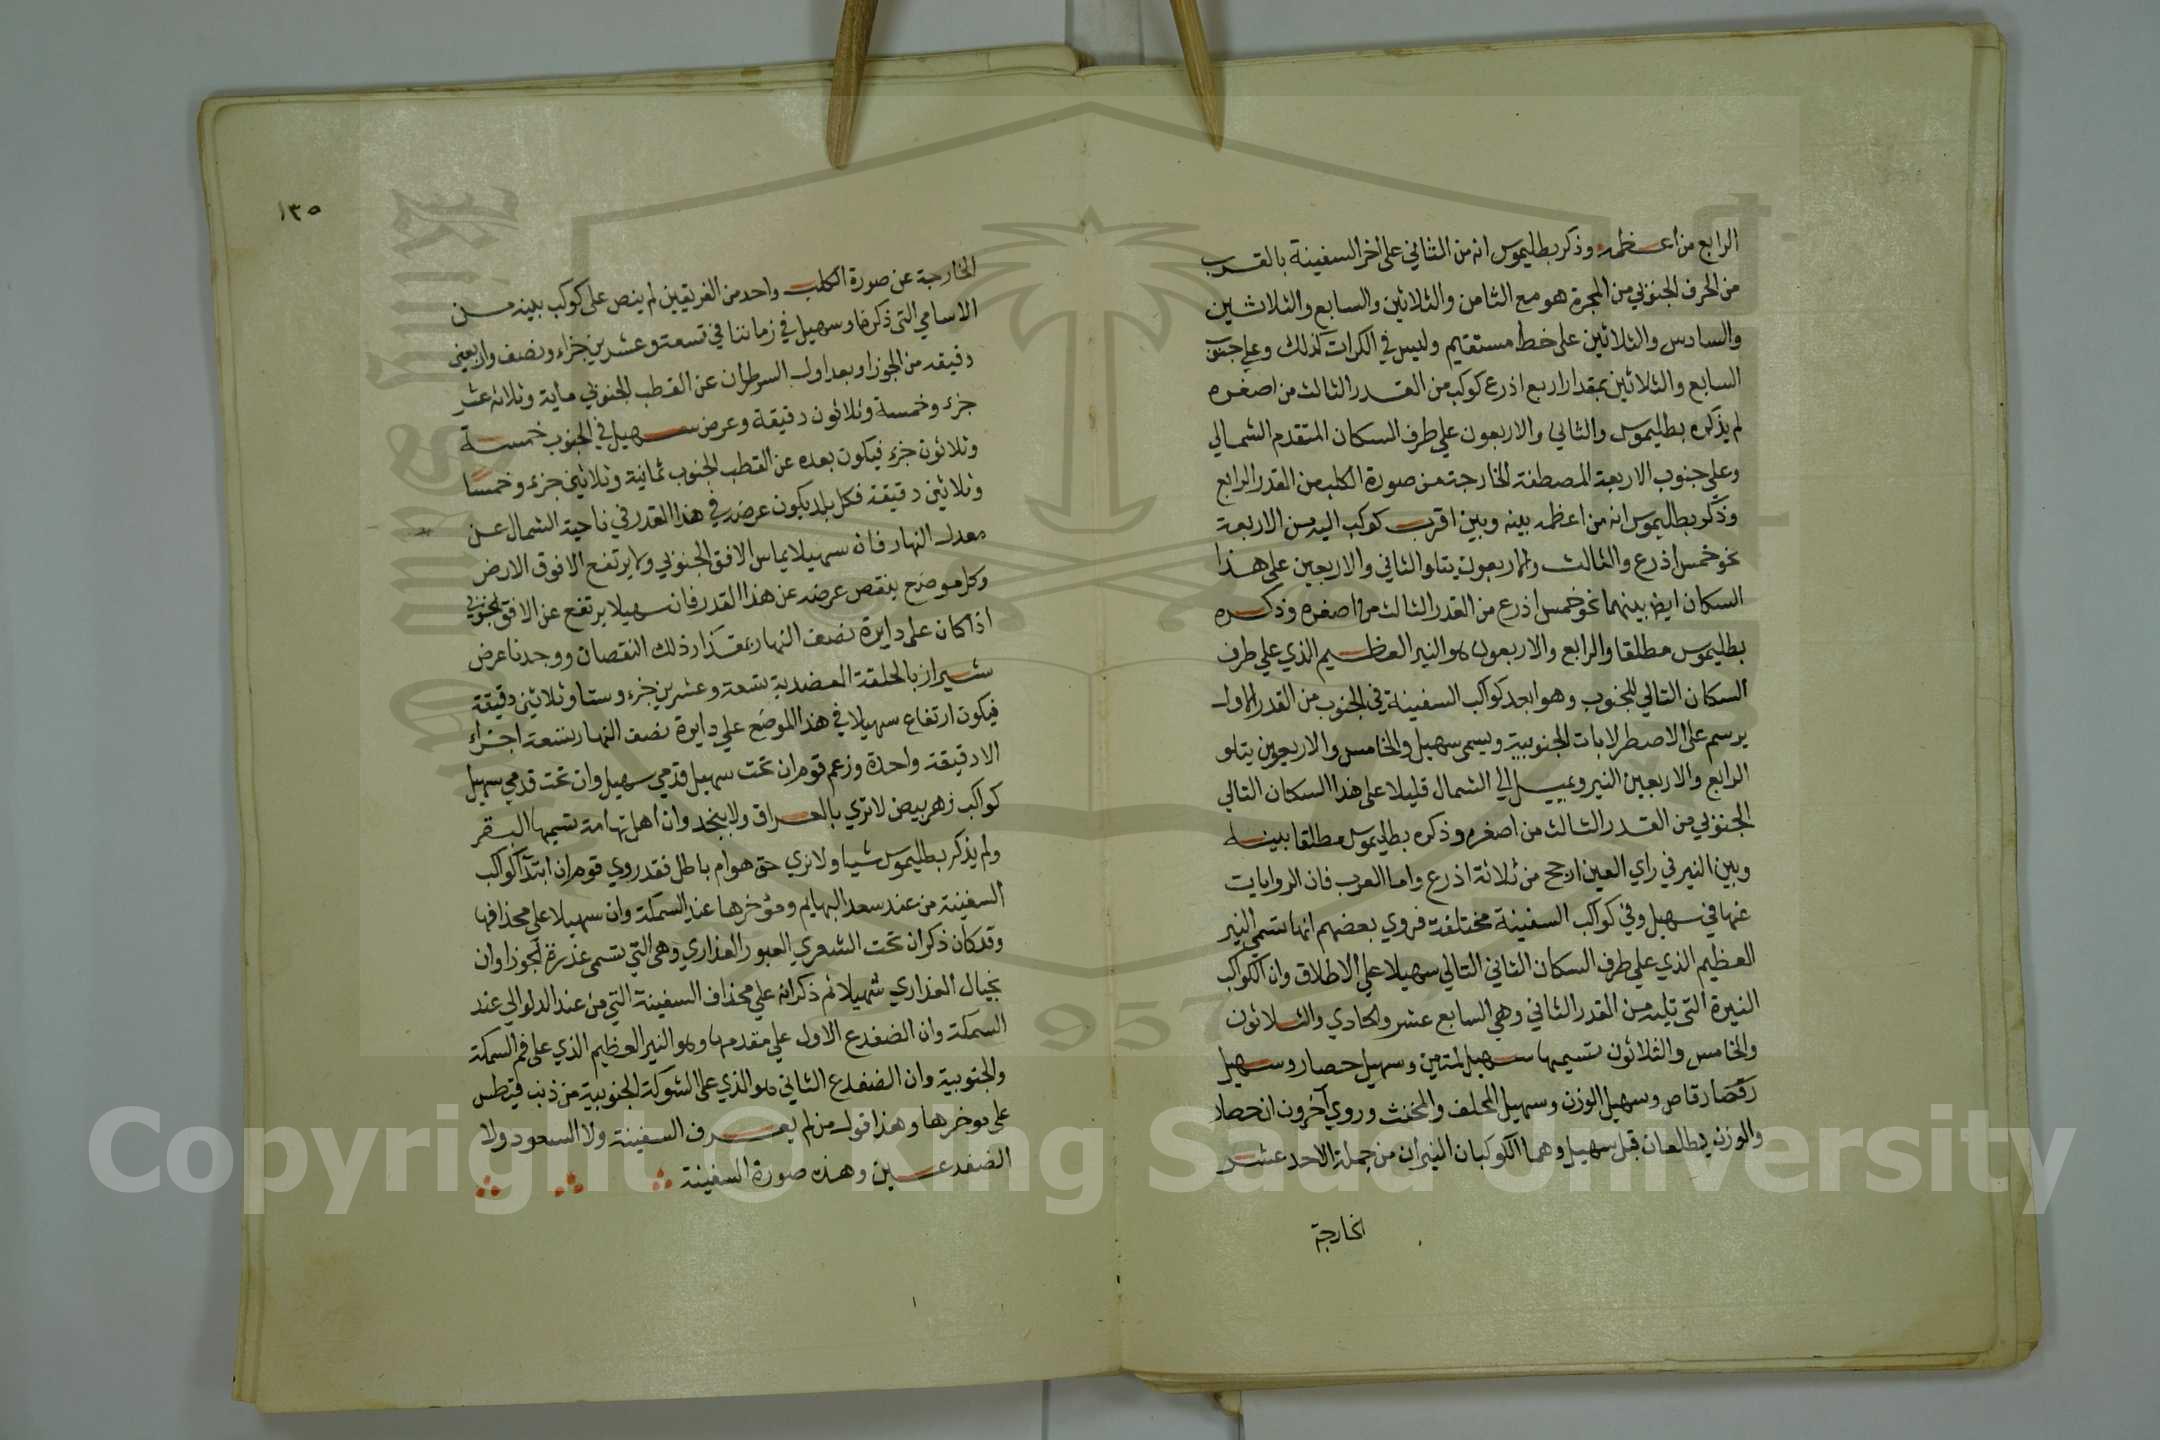 الرابع من اعظمه وذكر بطليموس انه من الثاني على اخر السفينة بالقرب
من الحرف الجنوبي من المجرة هو مع الثامن والثلاثين والسابع والثلاثين
والسادس والثلاثين على خط مستقيم وليس في الكرات كذلك وعلي جنوب
السابع والثلاثين بمقدار اربع اذرع كوكب من القدر الثالث من اصغره
لم يذكره بطليموس والثاني والاربعون علي طرف السكان المتقدم الشمالي
وعلي جنوب الاربعة المصطفة الخارجة من صورة الكلب من القدر الرابع
وذكر بطليموس انه من اعظمه بينه وبين اقرب كوكب اليه من الاربعة
نحو خمس اذرع والثالث والاربعون يتلو الثاني والاربعين علي هذا
السكان ايضا بينهما نحو خمس اذرع من القدر الثالث من اصغره وذكره
بطليموس مطلقا والرابع والاربعون هو النير العظيم الذي علي طرف
السكان التالي للجنوب وهو ابعد كواكب السفينة في الجنوب من القدر الاول
يرسم على الاصطرلابات الجنوبية ويسمي سهيل والخامس والاربعون يتلو
الرابع والاربعين النير ويميل الي الشمال قليلا على هذا السكان التالي
الجنوبي من القدر الثالث من اصغره وذكره بطليموس مطلقا بينه
وبين النير في راي العين ارجح من ثلاثة اذرع واما العرب فان الروايات
عنها في سهيل وفي كواكب السفينة مختلفة فروي بعضهم انها تسمي النير
العظيم الذي علي طرف السكان الثاني التالي سهيلا علي الاطلاق وان الكواكب
النيرة التي تليه من القدر الثاني وهي السابع عشر والحادي والثلاثون
والخامس والثلاثون تسميها سهيل لمتمين وسهيل حصار وسهيل
رقصا رقاص وسهيل الوزن وسهيل المحلف والمخنث وروي آخرون ان حصار
والوزن يطلعان قبل سهيل وهما الكوكبان النيران من جملة الاحد عشر
الخارجة
١٣٥
الخارجة عن صورة الكلب واحد من الفريقين لم ينص على كوكب بينه من
الاسامي التي ذكرها وسهيل في زماننا في تسعة وعشرين جزاء ونصف واربعين
دقيقه من الجوزا وبعد اول السرطان عن القطب الجنوبي ماية وثلاثة عشر
جزء وخمسة وثلاثون دقيقة وعرض سهيل في الجنوب خمسة
وثلاثون جزء فيكون بعده عن القطب الجنوب ثمانية وثلاثين جزء وخمسا
وثلاثين دقيقة فكل بلد يكون عرضه في هذا القدر في ناحية الشمال عن
معدل النهار فان سهيلا يماس الافق الجنوبي ولا يرتفع الا فوق الارض
وكل موضع ينقص عرضه عن هذا القدر فان سهيلا يرتفع عن الافق الجنوبي
اذا كان على دايرة نصف النهار بمقدار ذلك النقصان ووجدنا عرض
شيراز بالحلقة العضدية تسعة وعشرين جزء وستا وثلاثين دقيقة
فيكون ارتفاع سهيلا في هذا الموضع علي دايرة نصف النهار تسعة اجزاء
الا دقيقة واحدة وزعم قوم ان تحت سهيل قدمي سهيل وان تحت قدمي سهيل
كواكب زهر بيض لا تري بالعراق ولا بنجد وان اهل تهامة تسيمها البقر
ولم يذكر بطليموس شيا ولا نري حق هو ام باطل فقد روي قوم ان ابتدآ كواكب
السفينة من عند سعد البهايم ومؤخرها عند السمكة وان سهيلا علي مجذافها
وقد كان ذكر ان تحت الشعري العبور العذاري وهي التي تسمى عذرة الجوزا وان
بحيال العذاري سهيلا ثم ذكر انه علي مجذاف السفينة التي من عند الدلو الي عند
السمكة وان الضفدع الاول علي مقدمها وهو النير العظيم الذي على فم السمكة
والجنوبية وان الضفدع الثاني هو الذي على الشوكة الجنوبية من ذنب قيطس
على موخرها وهذا قول من لم يعرف السفينة ولا السعود ولا
الضفدعين وهذه صورة السفينة
Copyright © King Saud University
1957